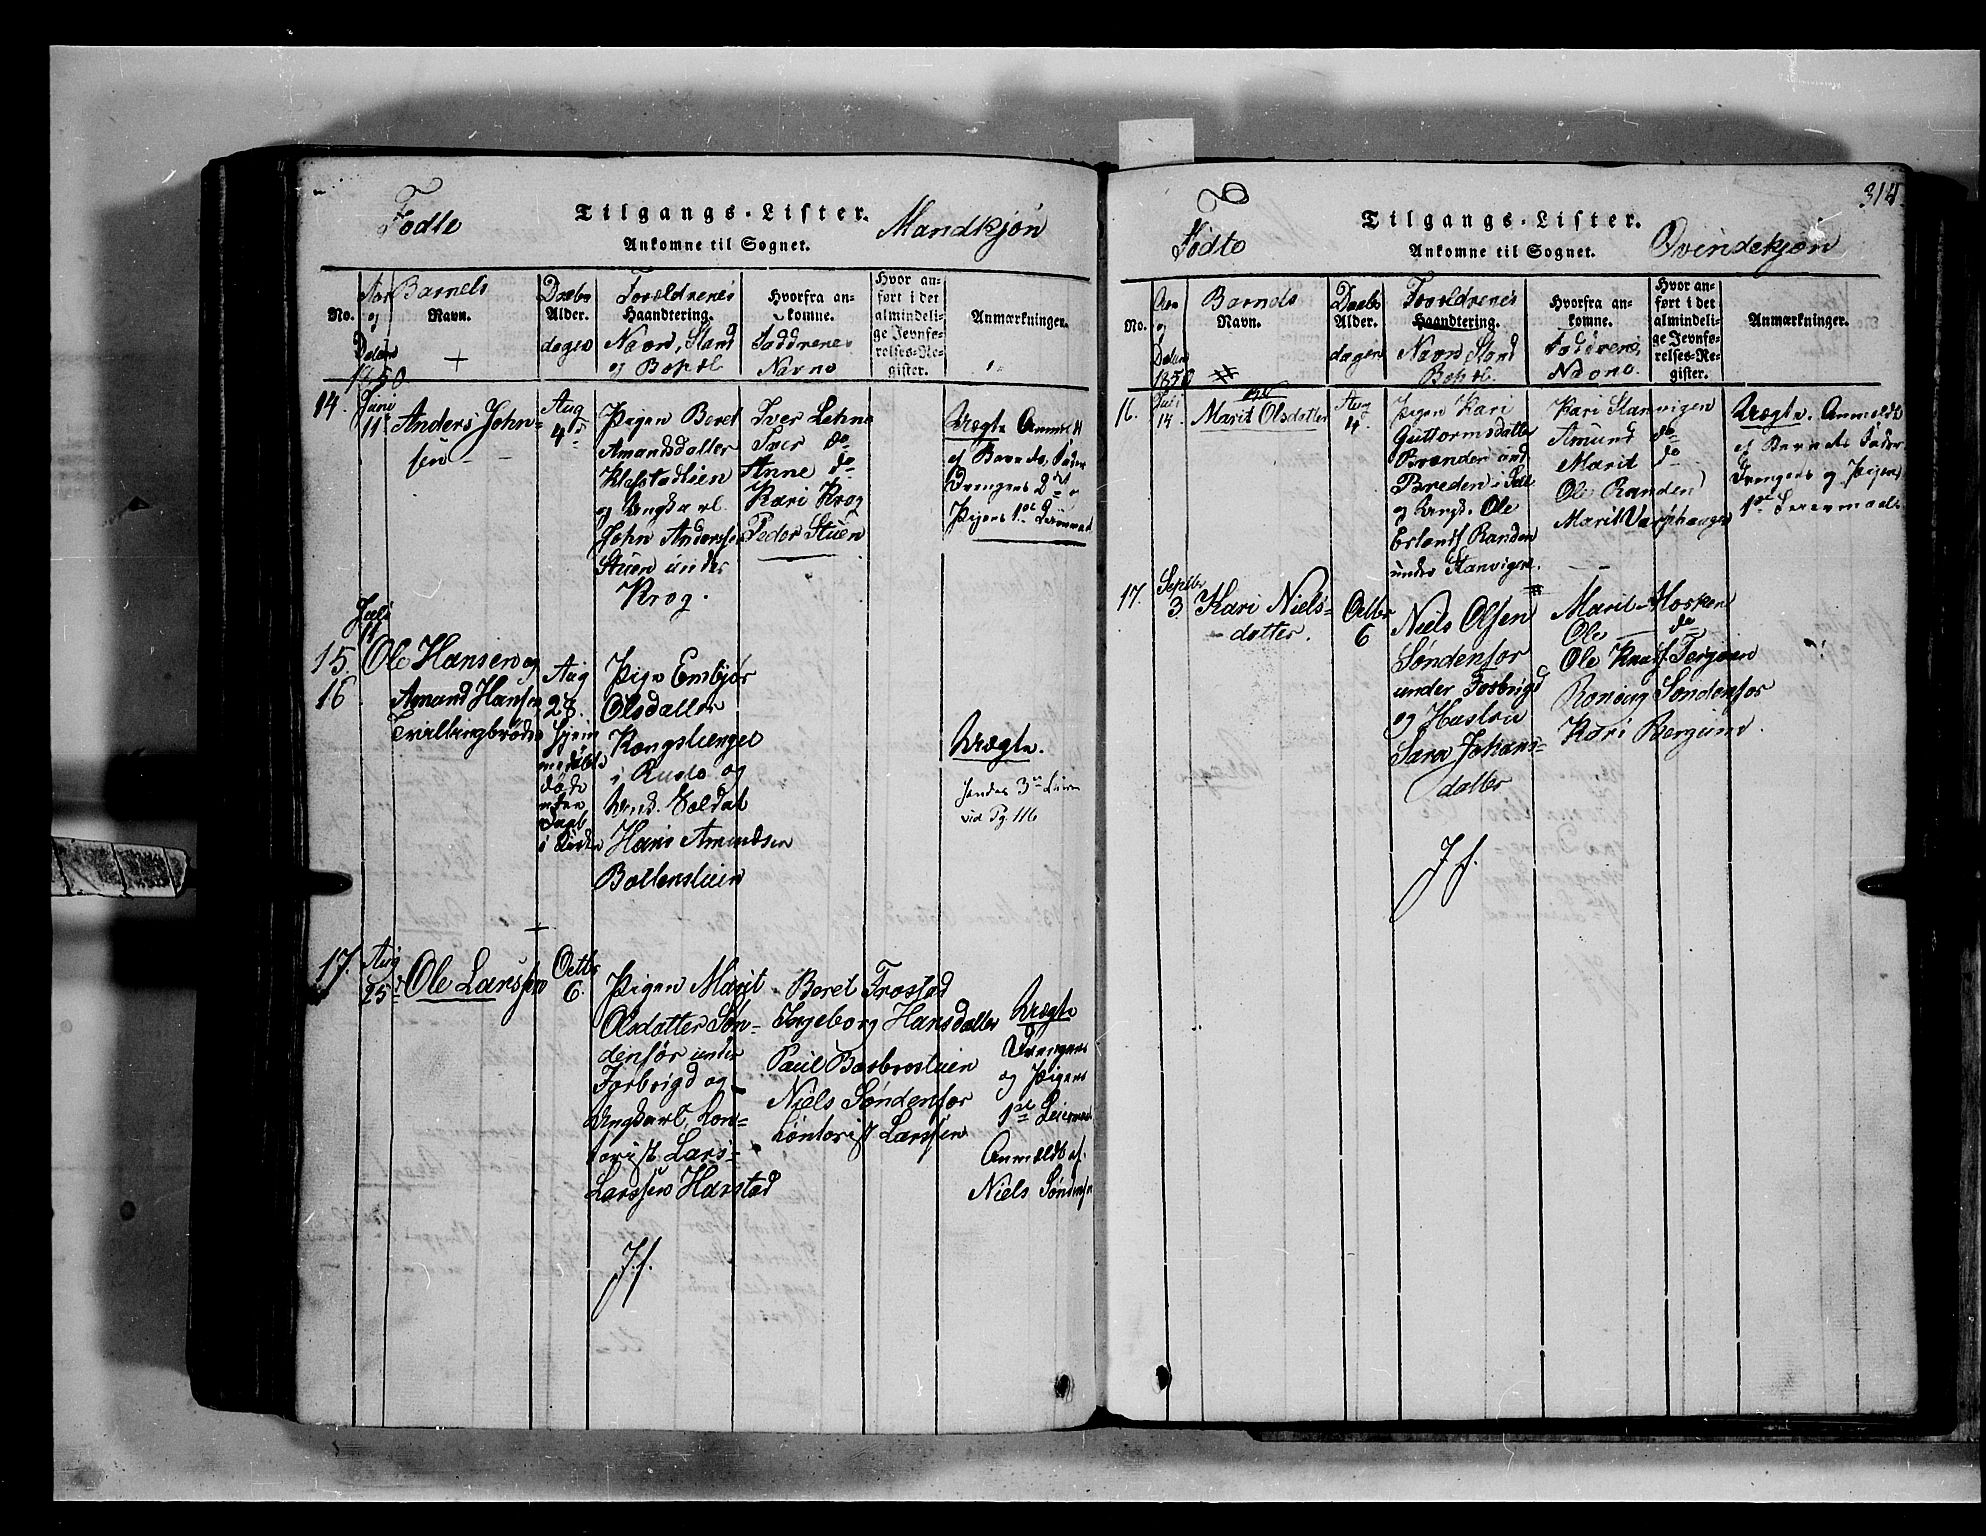 Fødte
Tilgangs-Lister.
Ankomne til Sognet.
Mandkjøn
No.
Aar og Datum 1850
Barnets
Navn.
Daabs
Alder.
dagen
Forældrenes
Haandtering.
Navn, Stand
og Bopæl
Hvorfra an-
komne.
Faddrenes
Navne
Hvor an-
ført i det
almindeli-
ge Jevnfø-
relses-Re-
gister.
Anmærkninger.
14.
Juni
11
Anders John-
sen
Aug
4de
Pigen Beret
Amundsdatter
Klefstadlien
og Ungkarl
John Andersen
Stuen under
Krog.
Iver Lehne
Iver do
Anne do
Kari Krog
Peder Stuen
Uægte Anmeldt
af Barnets Fader
Drengens 2det og
Pigens 1ste Leiermaal
Juli
11
15.
16
Ole Hansen og
Amund Hansen
Tvillingbrødre
Aug
28.
hjem
medøbte
døde
uden
Daab
i Kirken
Pige Embjør
Olsdatter
Kongslienget
i Rusto og
Und. Soldat
Hans Amundsen
Bottenstuen
Uægte.
hendes 3die Leierm
vid Pg. 116
17.
Aug
25
Ole Larssen
Octbr
6.
Pigen Marit
Olsdatter Søn-
denfor under
Forbrigd og
Ungkarl, Kon-
torist Lars
Larssen Harstad
Beret Frostad
Ingeborg Hansdatter
Paul Barbrostuen
Niels Søndenfor
Kontorist Larssen
Uægte
Drengens
og Pigens
1ste Leiermaal
Anmeldt af
Niels Søndenfor
314
Fødte
Tilgangs-Lister.
Ankomne til Sognet.
Qvindekjøn
No.
Aar
og
Datum
1850
Barnets
Navn.
Daabs
Alder.
dagen
Forældrenes
Haandtering.
Navn, Stand
Bopæl.
Hvorfra an-
komne.
Faddrenes
Navne.
Hvor an-
ført i det
almindeli-
ge Jevnfø-
relses-Re-
gister.
Anmærkninger.
16.
Juli
14.
Marit Olsdatter
Aug
4.
Pigen Kari
Guttormsdatter
Brænden und
Breden i Sell
og Ungk. Ole
Erlands. Randen
under Slanvigen.
Kari Slanvigen
Amund do
Marit do
Ole Randen
Marit Varphaugen
Uægte. Anmeldt
af Barnets Fader
Drengens og Pigens
1ste Leiermaal.
17.
Septbr
3.
Kari Niels-
datter.
Octbr
6
Niels Olsen
Søndenfor
under Forbrigd
og Hustru
Sara Johans-
datter
Marit Mosken
Ole do
Ole Knuds. Bergum
Rønnaug Søndenfor
Kari Bergum.